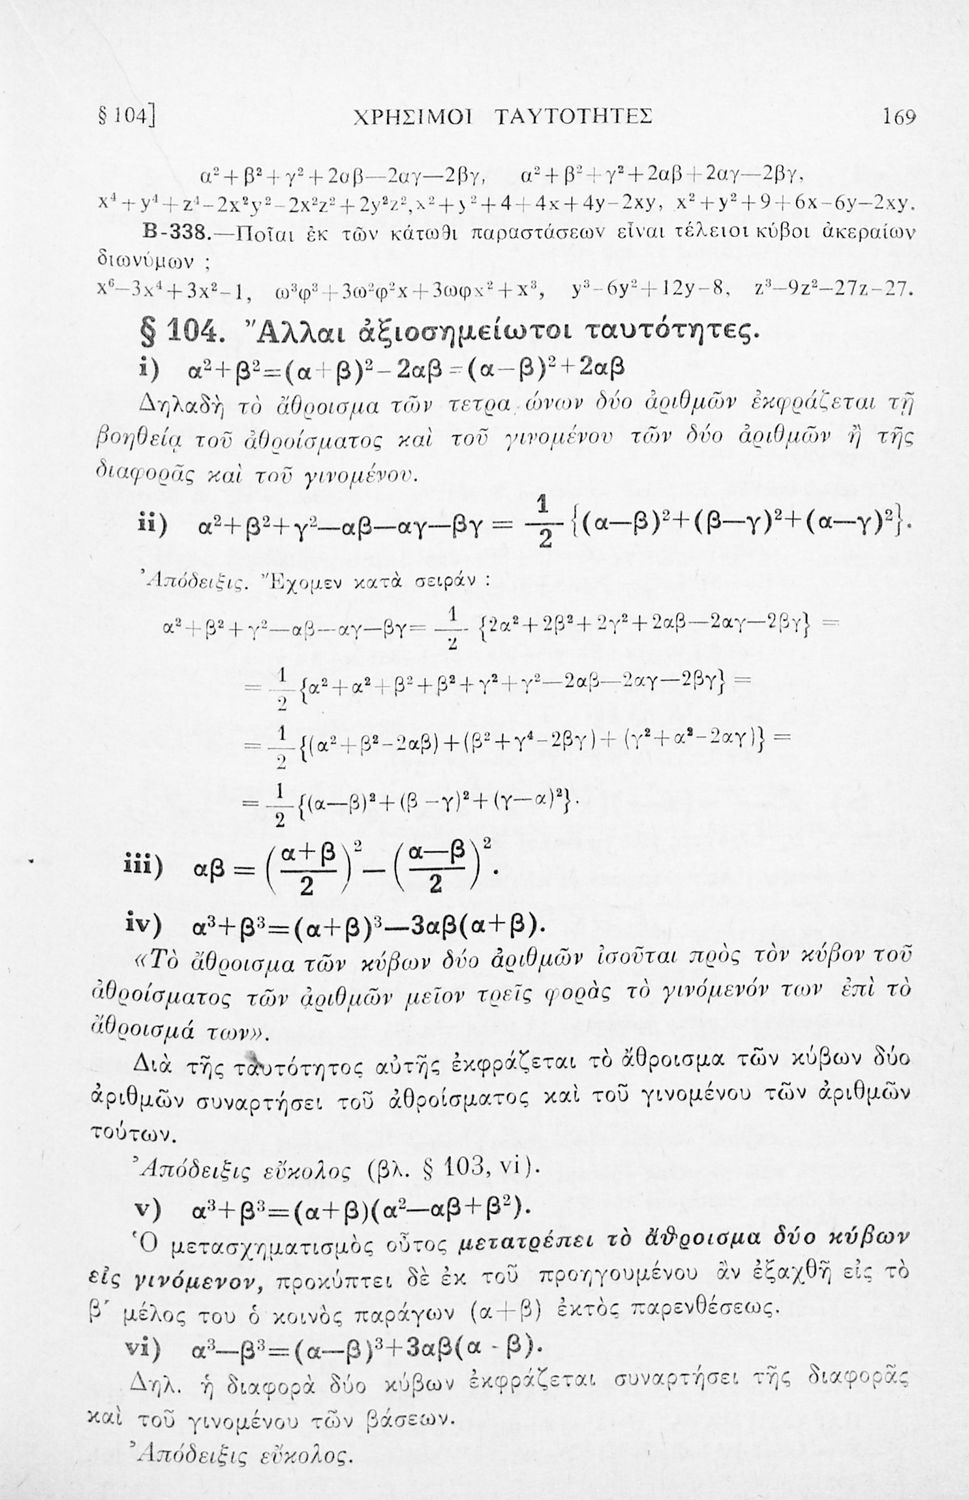 § 104] ΧΡΗΣΙΜΟΙ ΤΑΥΤΟΤΗΤΕΣ 169
α²+β²+γ²+2αβ—2αγ—2βγ, α²+β²+γ²+2αβ+2αγ—2βγ,
x⁴+y⁴+z⁴-2x²y²-2x²z²+2y²z², x²+y²+4+4x+4y-2xy, x²+y²+9+6x-6y-2xy.
Β-338.—Ποῖαι ἐκ τῶν κάτωθι παραστάσεων εἶναι τέλειοι κύβοι ἀκεραίων
διωνύμων ;
x⁶-3x⁴+3x²-1, ω³φ³+3ω²φ²x+3ωφx²+x³, y³-6y²+12y-8, z³-9z²-27z-27.
§ 104. Ἄλλαι ἀξιοσημείωτοι ταυτότητες.
i) α²+β²=(α+β)²-2αβ=(α-β)²+2αβ
Δηλαδὴ τὸ ἄθροισμα τῶν τετρα ώνων δύο ἀριθμῶν ἐκφράζεται τῇ
βοηθείᾳ τοῦ ἀθροίσματος καὶ τοῦ γινομένου τῶν δύο ἀριθμῶν ἢ τῆς
διαφορᾶς καὶ τοῦ γινομένου.
ii) α²+β²+γ²—αβ—αγ—βγ = 1/2 {(α—β)²+(β—γ)²+(α—γ)²}.
Ἀπόδειξις. Ἔχομεν κατὰ σειράν :
α²+β²+γ²—αβ—αγ—βγ= 1/2 {2α²+2β²+2γ²+2αβ—2αγ—2βγ} =
= 1/2 {α²+α²+β²+β²+γ²+γ²—2αβ—2αγ—2βγ} =
= 1/2 {(α²+β²-2αβ)+(β²+γ⁴-2βγ)+(γ²+α²-2αγ)} =
= 1/2 {(α—β)²+(β-γ)²+(γ—α)²}.
iii) αβ = (α+β/2)² — (α—β/2)².
iv) α³+β³=(α+β)³—3αβ(α+β).
«Τὸ ἄθροισμα τῶν κύβων δύο ἀριθμῶν ἰσοῦται πρὸς τὸν κύβον τοῦ
ἀθροίσματος τῶν ἀριθμῶν μεῖον τρεῖς φορὰς τὸ γινόμενόν των ἐπὶ τὸ
ἄθροισμά των».
Διὰ τῆς ταυτότητος αὐτῆς ἐκφράζεται τὸ ἄθροισμα τῶν κύβων δύο
ἀριθμῶν συναρτήσει τοῦ ἀθροίσματος καὶ τοῦ γινομένου τῶν ἀριθμῶν
τούτων.
Ἀπόδειξις εὔκολος (βλ. § 103, vi).
v) α³+β³=(α+β)(α²—αβ+β²).
Ὁ μετασχηματισμὸς οὗτος μετατρέπει τὸ ἄθροισμα δύο κύβων
εἰς γινόμενον, προκύπτει δὲ ἐκ τοῦ προηγουμένου ἂν ἐξαχθῇ εἰς τὸ
β΄ μέλος του ὁ κοινὸς παράγων (α+β) ἐκτὸς παρενθέσεως.
vi) α³—β³=(α—β)³+3αβ(α-β).
Δηλ. ἡ διαφορὰ δύο κύβων ἐκφράζεται συναρτήσει τῆς διαφορᾶς
καὶ τοῦ γινομένου τῶν βάσεων.
Ἀπόδειξις εὔκολος.